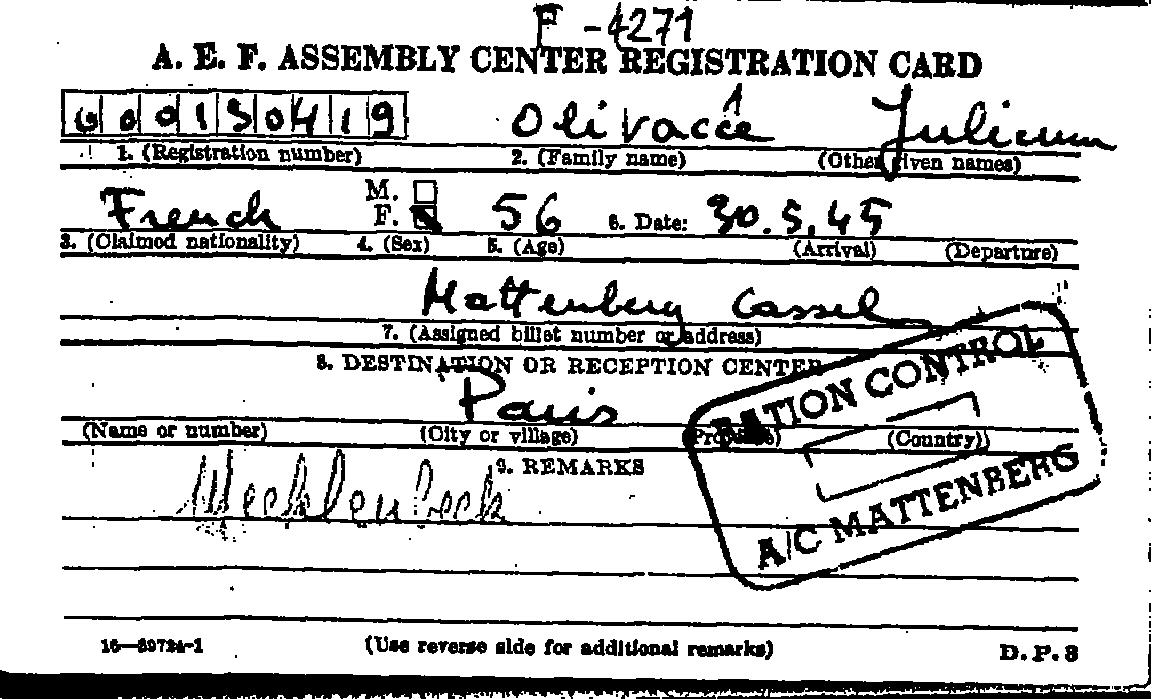 F-4271
A. E. F. ASSEMBLY CENTER REGISTRATION CARD
000130419 Olivacce
1. (Registration number) 2. (Family name) (Other given names)
French M. F. 56 6. Date: 30.5.45
3. (Claimed nationality) 4. (Sex) 5. (Age) (Arrival) (Departure)
Mattenberg Cassel
7. (Assigned billet number or address)
8. DESTINATION OR RECEPTION CENTER
Paris
(Name or number) (City or village) (Province) (Country)
RATION CONTROL
A/C MATTENBERG
9. REMARKS
Mecklenbeck
16—39724-1 (Use reverse side for additional remarks) D. P. 3